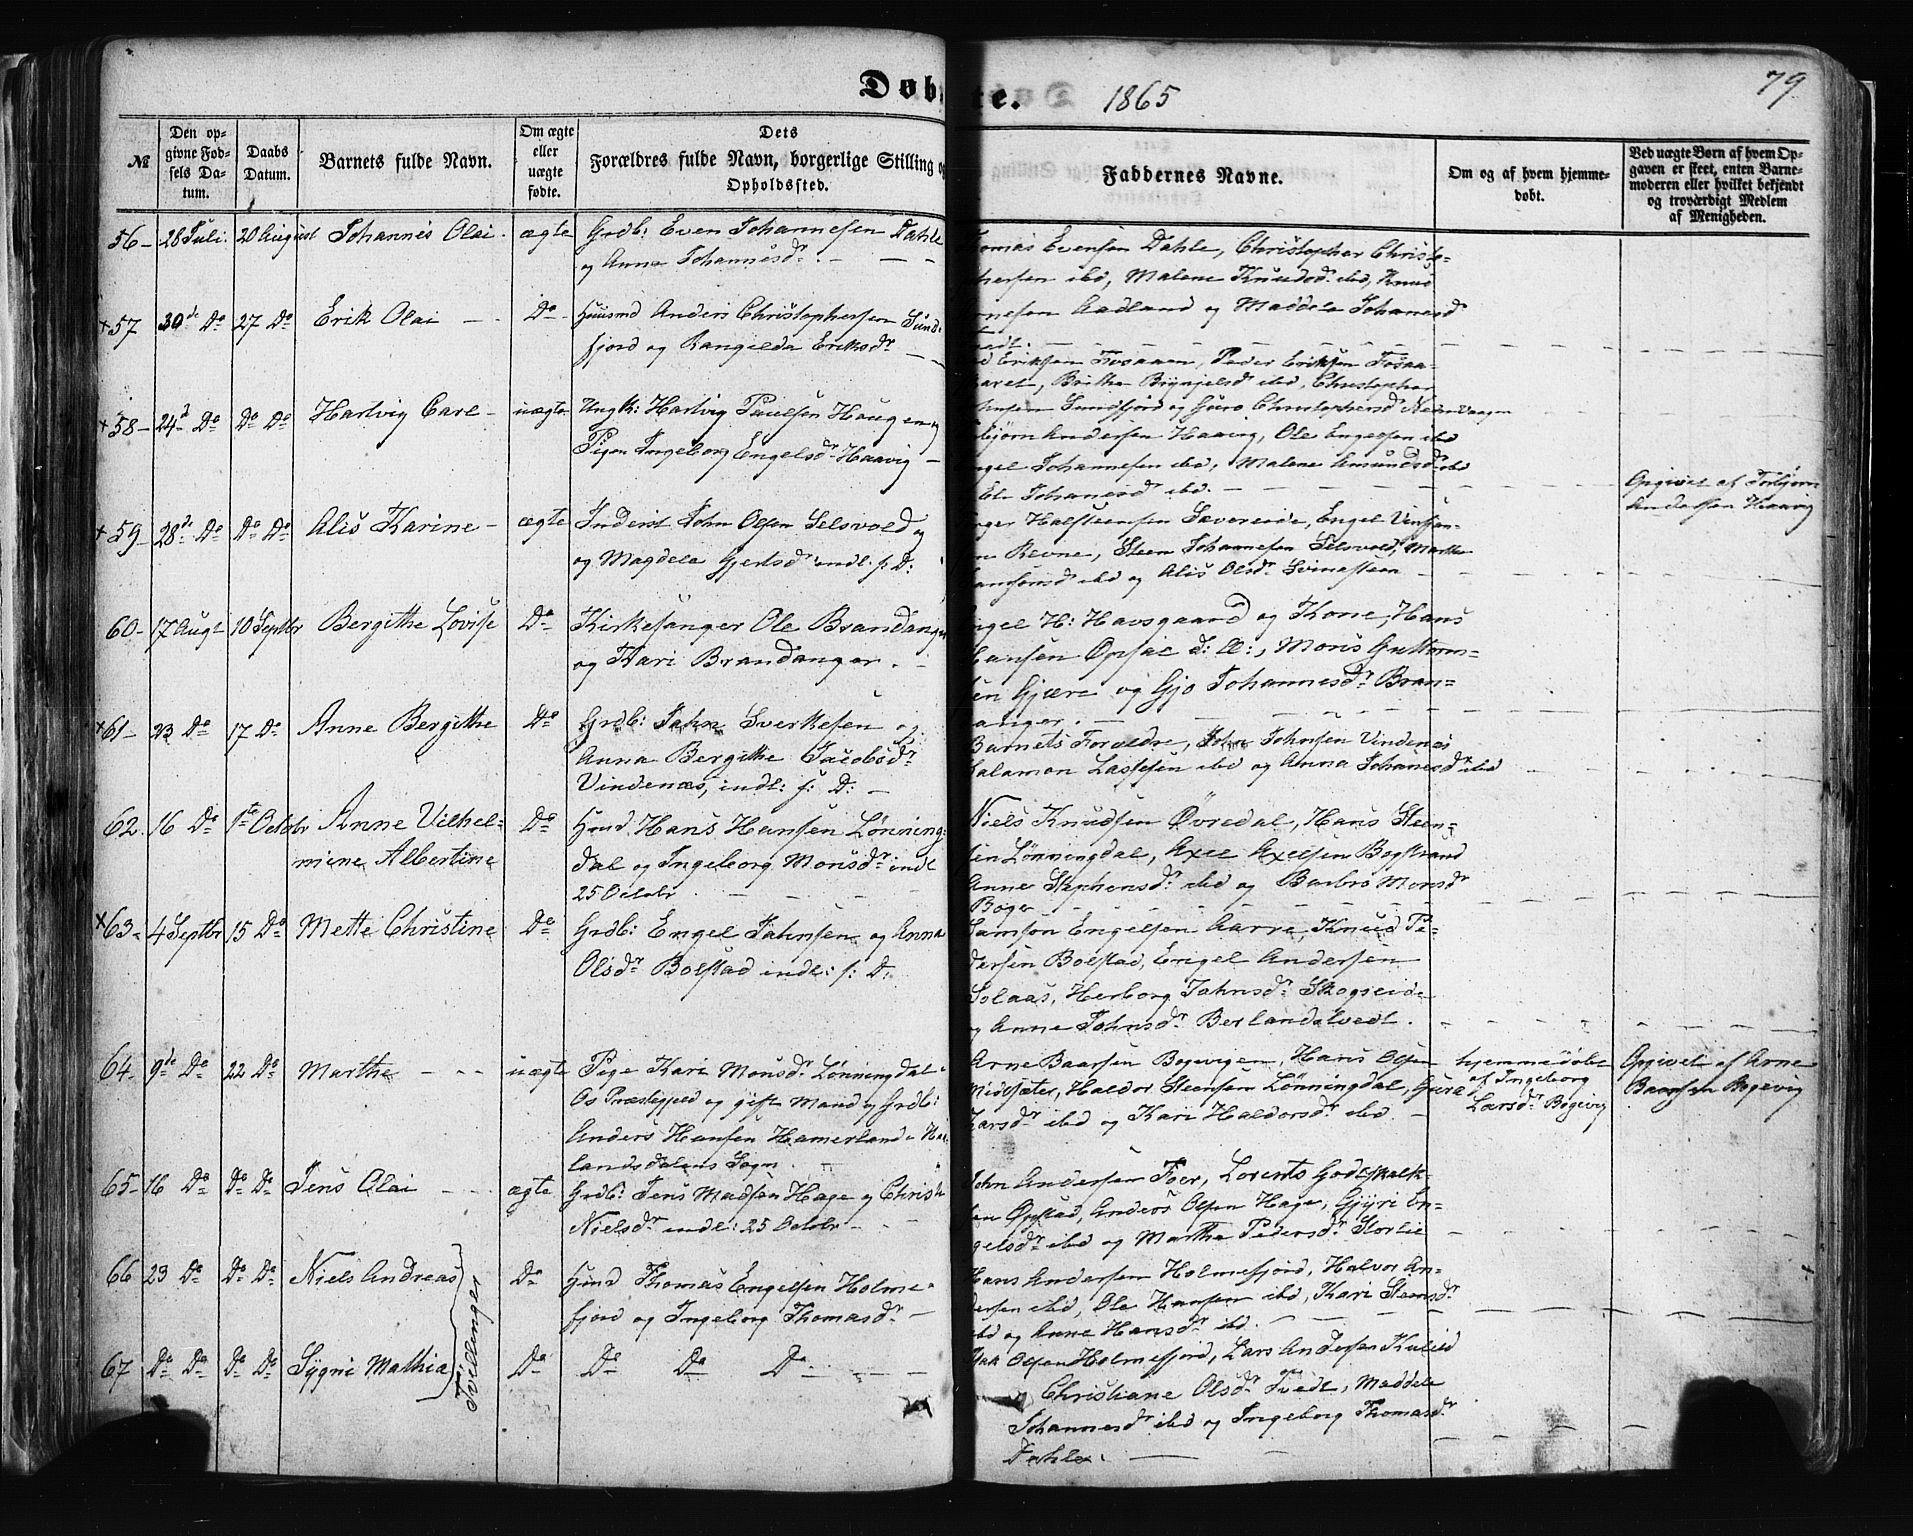 Døb te. 1865
79
№
Den op-
givne Fød-
sels Da-
tum.
Daabs
Datum.
Barnets fulde Navn.
Om ægte
eller
uægte
fødte.
Dets
Forældres fulde Navn, borgerlige Stilling og
Opholdssted.
Faddernes Navne.
Om og af hvem hjemme-
døbt.
Ved uægte Børn af hvem Op-
gaven er skeet, enten Barne-
moderen eller hvilket bekjendt
og troværdigt Medlem
af Menigheden.
56 - 28 Juli. 20 August Johannes Olai. ægte Grdb: Even Johannesen Dahle
og Anna Johannesdr. - - -
Tomas Evensen Dahle, Christopher Christo-
phersen ibd, Malene Knudsdr ibd, Knud
Arnesen Aadland og Maddela Johanesdr
Tvedt. - - -
+ 57 30de Do 27 Do Erik Olai - - Do Huusmd Anders Christophersen Sund-
fjord og Rangilda Eriksdr - -
Eriksen Fosaaen, Peder Eriksen Fosaa-
, Britha Brynjelsdr ibd, Christopher
Sundfjord og Guro Christophersdr
+ 58 - 24d Do Do Do Hartvig Carl - uægte Ungk: Hartvig Paulsen Haugen og
Pigen Ingeborg Engelsdr Haavig -
Torbjørn Andersen Haavig, Ole Engelsen ibd
Engel Johannesen ibd, Malene Amundsdr ibd
Johanesdr ibd. - - -
Opgivet af Torbjørn
Andersen Haavig
+ 59 - 28de Do Do Do Alis Karine - ægte Inderst John Olsen Selsvold og
og Magdela Gjertsdr indl: s: D:
Halsteensen Sævereide, Engel
Revne, Steen Johannesen Selsvold, Martha
ibd og Alis Olsdr Svinesteen - -
60 - 17 Augt 10 Septbr Bergithe Lovise Do Kirkesanger Ole Brandanger
og Kari Brandanger. -
Engel H: Havsgaard og Kone, Hans
Hansen Opsal d: Æ:, Mons Guttorm-
sen Gjære og Gjo Johannesdr Bran-
danger. - - -
+ 61 - 23 Do 17 Do Anne Bergithe Do Grdb: John Sverkesen og
Anna Bergithe Jacobsdr
Vindenæs, indl: s: D: -
Barnets Forældre, John Johnsen Vindenæs
Salamon Lassesen ibd og Anna Johanesdr ibd
62. 16 Do 1ste Octobr Anne Vilhel-
mine Albertine Do Hmd Hans Hansen Lønning-
dal og Ingeborg Monsdr indl
25 Octobr. - - -
Niels Knudsen Øvredal, Hans Steen-
sen Lønningdal, Axel Axelsen Bogstrand
Anne Stephensdr ibd og Barbro Monsdr
Bøger - - -
+ 63 - 4 Septbr 15 Do Mette Christine Do Grdb: Engel Johnsen og Anna
Olsdr Bolstad indl: s: D:
Samson Engelsen Aarre, Knud Pe-
dersen Bolstad, Engel Andersen
Solaas, Herborg Johnsdr Skogseid
og Anne Johnsdr Berlandstvedt. - - -
64 - 9de Do 22 Do Marthe - - - uægte Pige Kari Monsdr Lønningdal
Os Præstegjeld og gift Mand og Grdb:
Anders Hansen Hamerland i Haa-
landsdalens Sogn.
Arne Baarsen Bogevigen, Hans Olsen
Midtsæter, Haldor Steensen Lønningdal, Guro
Larsdr ibd og Kari Haldorsdr ibd -
hjemmedøbt
af Ingeborg
Larsdr Bogevig
Opgivet af Arne
Baarsen Bogevig
65 - 16 Do Do Do Jens Olai - - - ægte Grdb: Jens Madsen Hage og Christi
Nielsdr indl: 25 Octobr - - -
John Andersen Foer, Lorents Godtskalk-
sen Opstad, Anders Olsen Hage, Gjyri En-
gelsdr ibd og Martha Pedersdr Storlie - - -
66 23 Do Do Do Niels Andreas Do Hmd Thomas Engelsen Holme-
fjord og Ingeborg Thomasdr -
Hans Andersen Holmefjord, Halvor An-
dersen ibd, Ole Hansen ibd, Kari Steensdr
ibd og Anne Hansdr ibd. - - -
Tvillinger
67 Do Do Do Do Sygni Mathia Do Do Do Do - - -
Olsen Holmefjord, Lars Andersen Kuleid
Christiane Olsdr Tvedt, Maddela
Johannesdr ibd og Ingeborg Thomasdr
Dahle. - - -